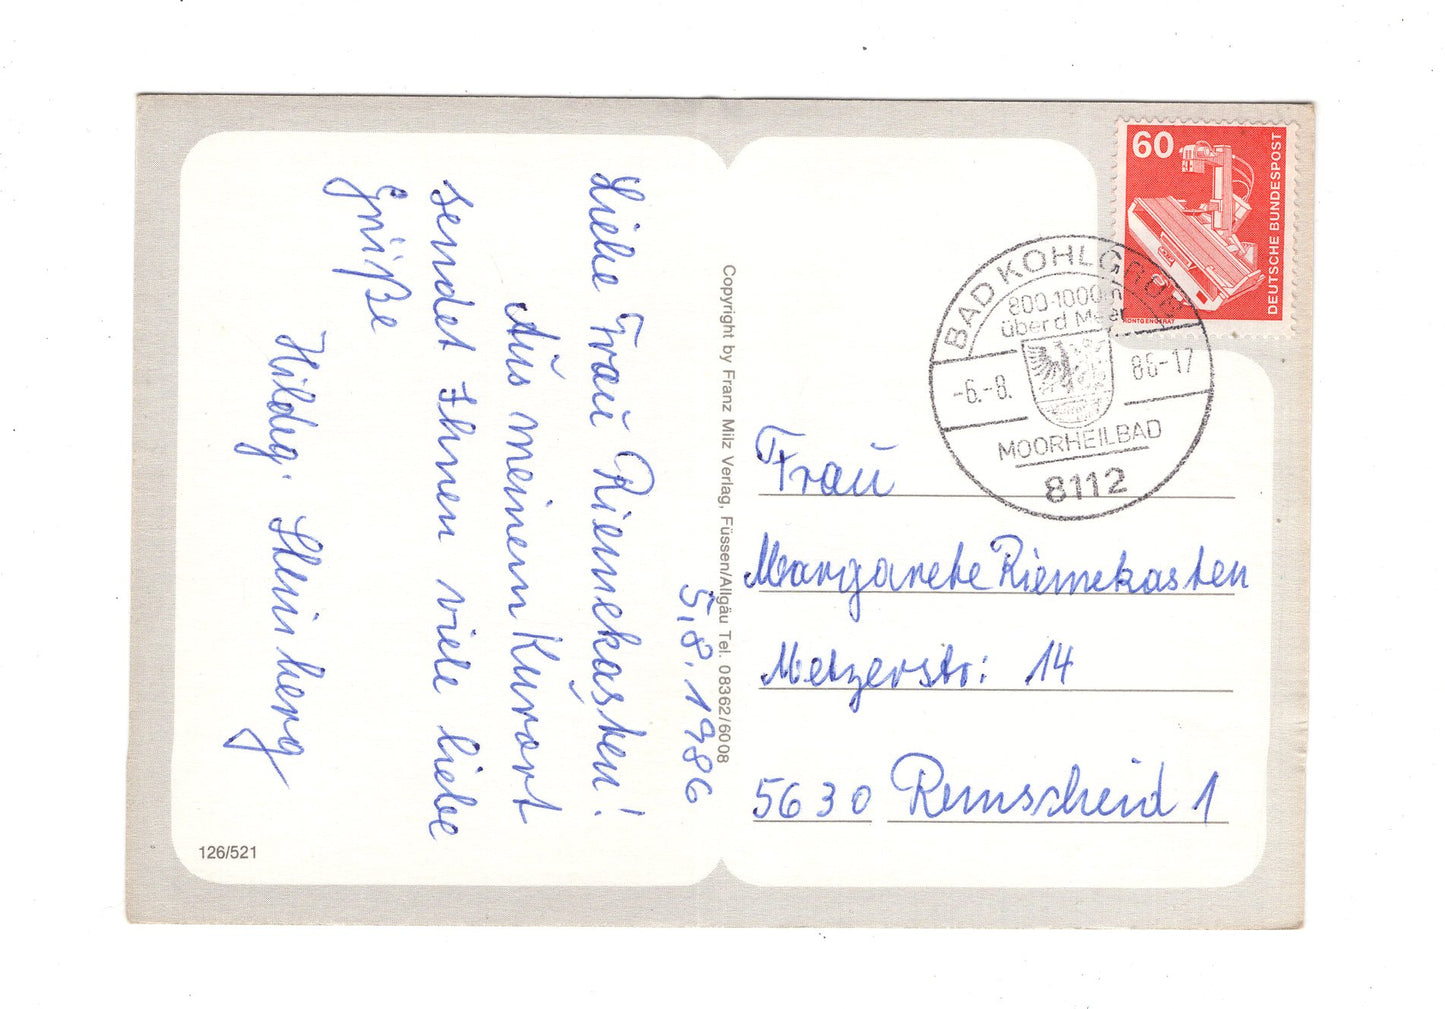 5.8.1986
Liebe Frau Riemekasten!
Aus meinem Kurort
sendet Ihnen viele liebe
Grüße
Hildeg. Steinberg
126/521
Copyright by Franz Milz Verlag, Füssen/Allgäu Tel. 08362/6008
60
DEUTSCHE BUNDESPOST
RÖNTGENGERÄT
BAD KOHLGRUB
800-1000m
über d Meer
-6.-8. 86-17
MOORHEILBAD
8112
Frau
Margarete Riemekasten
Metzerstr: 14
5630 Remscheid 1